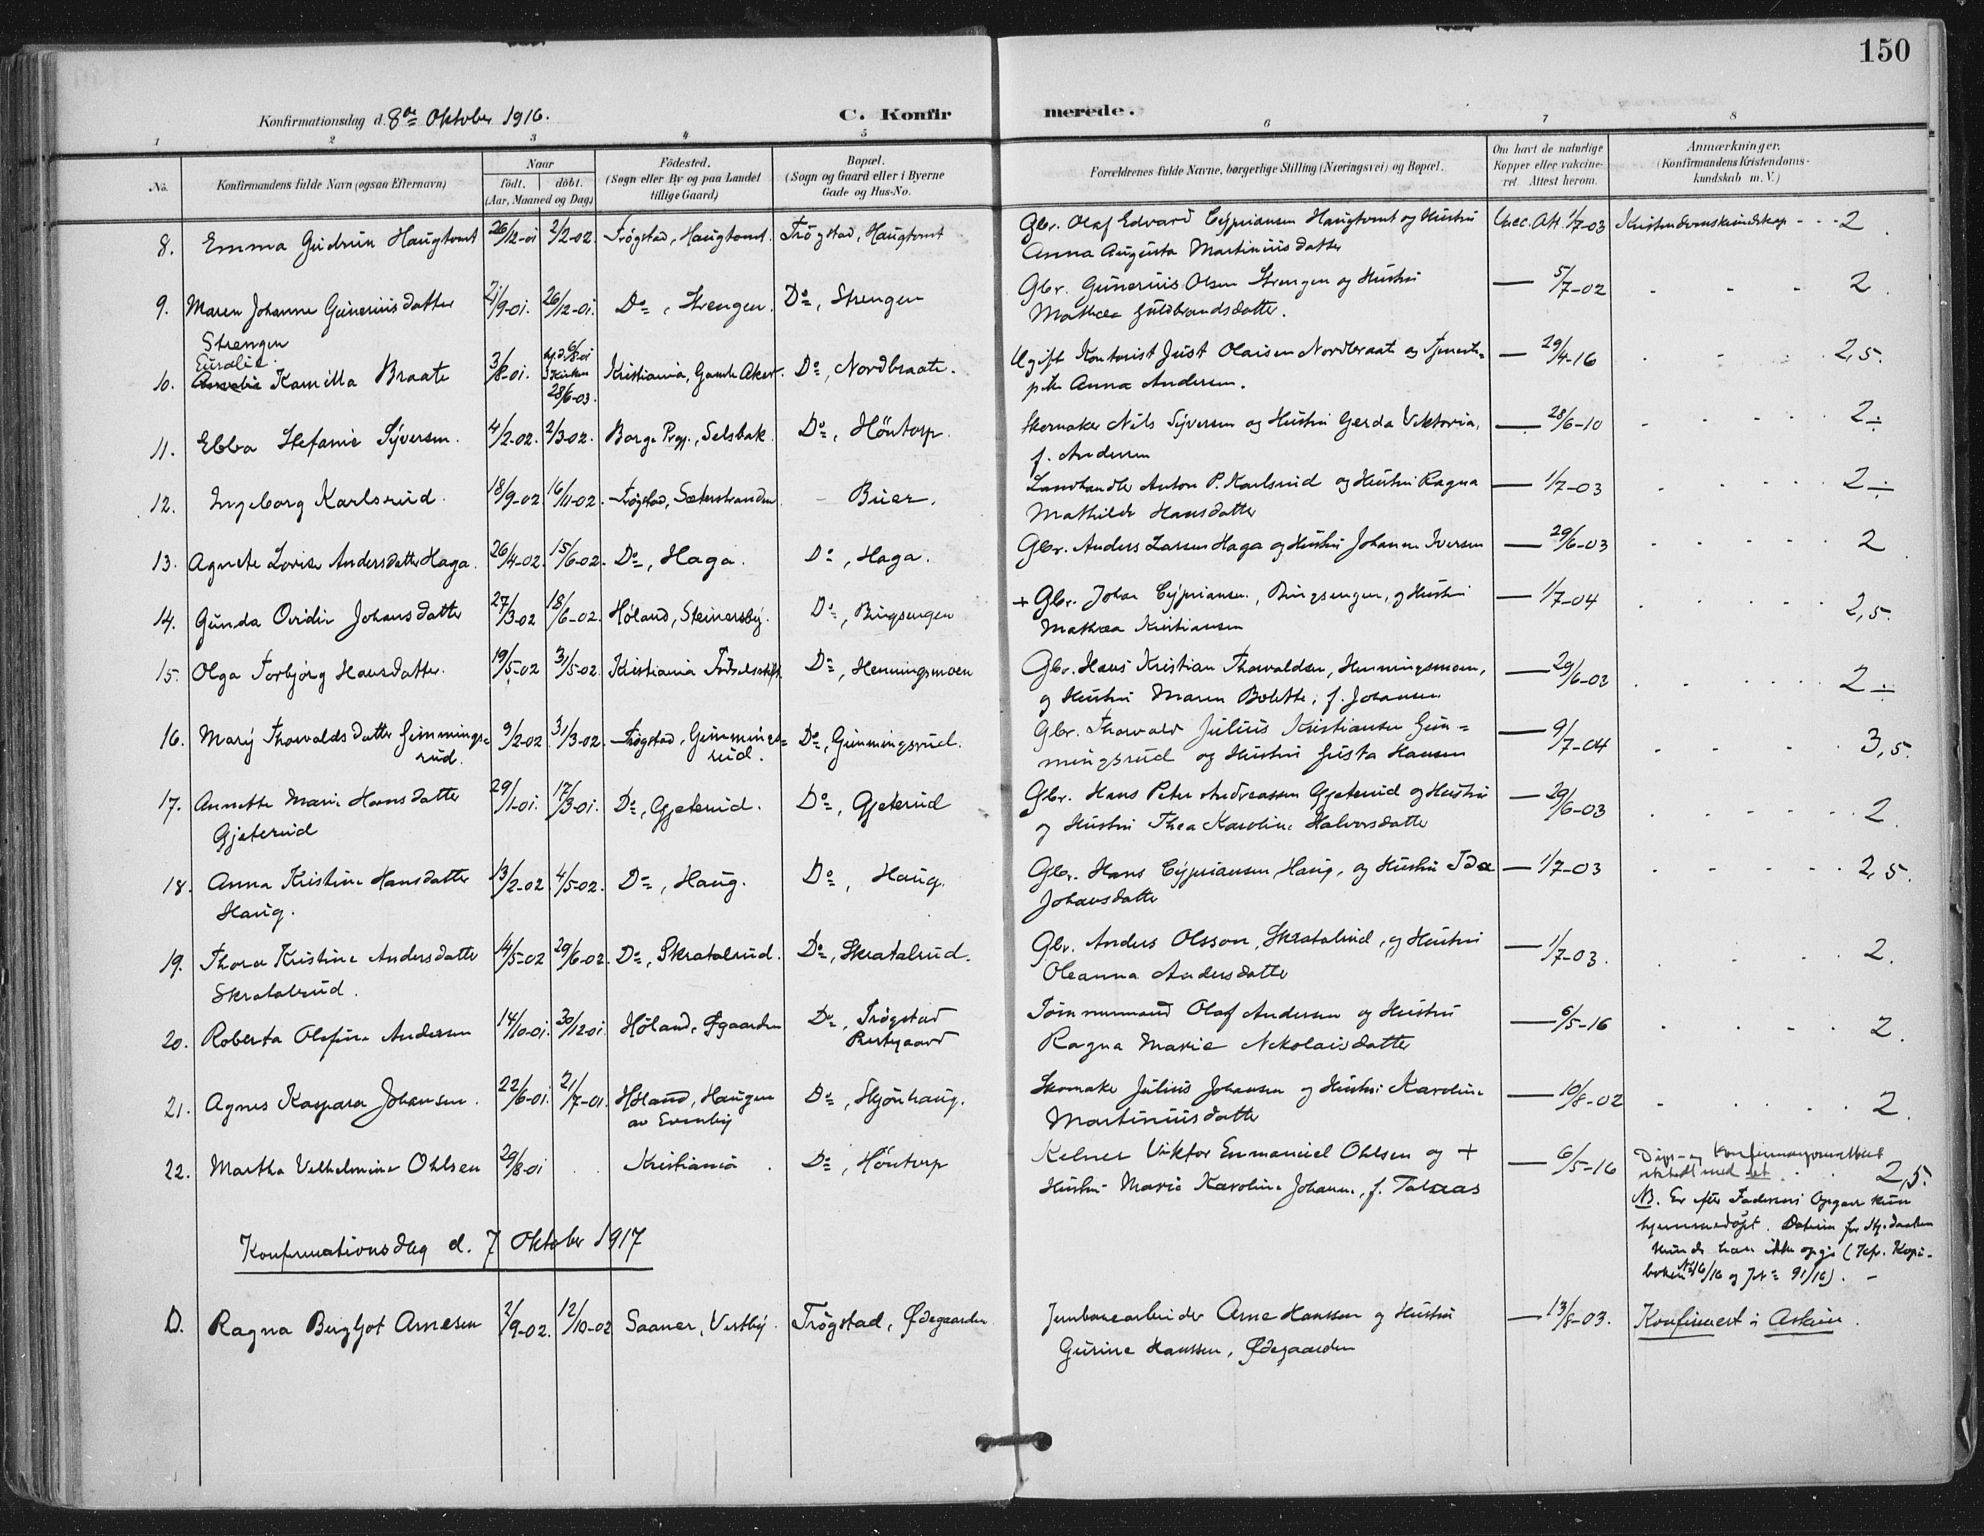 150
Konfirmationsdag d. 8de Oktober 1916.
C. Konfirmerede.
1 2 3 4 5 6 7 8
No. Konfirmandens fulde Navn (ogsaa Efternavn) Naar født. døbt. (Aar, Maaned og Dag) Fødested. (Sogn eller By og paa Landet tillige Gaard) Bopæl. (Sogn og Gaard eller i Byerne Gade og Hus-No. Forældrenes fulde Navne, borgerlige Stilling (Næringsvei) og Bopæl. Om havt de naturlige Kopper eller vakcineret. Attest herom. Anmærkninger. (Konfirmandens Kristendomskundskab m. V.)
8. Emma Gudrun Haugtomt 26/12-01 2/2-02. Trøgstad, Haugtomt. Trøgstad, Haugtomt Gbr. Olaf Edvard Cypriansen Haugtomt og Hustru Vacc. Att. 1/7-03 Kristendomskundskap - - - 2.
Anna Augusta Martiniusdatter
9. Maren Johanne Guneriusdatter 21/9-01. 26/12-01. Do, Strengen. Do, Strengen Gbr. Gunerius Olsen Strengen og Hustru — 5/7-02 - - - 2.
Strengen Mathea Guldbrandsdatter.
10. Kamilla Braate 3/8-01. 28/6-03. Kristiania, Gamle Aker. Do, Nordbraate. Ugift Kontorist Just Olaisen Nordbraate og Tjeneste- — 29/4-16 - - - 2,5.
pike Anna Andersen.
11. Ebba Stefanie Syversen. 4/2-02. 2/3-02. Borge Prgj., Selsbak. Do, Höntorp. Skomaker Nils Syversen og Hustru Gerda Viktoria, — 28/6-10 - - - 2÷
f. Andersen
12. Ingeborg Karlsrud. 18/9-02 16/11-02. Trøgstad, Sæterstranden - Buer. Landhandler Anton P. Karlsrud og Hustru Ragna — 1/7-03 - - - 2÷
Mathilde Hansdatter
13. Agnete Lovise Andersdatter Haga. 26/4-02. 15/6-02. Do, Haga. Do, Haga. Gbr. Anders Larsen Haga og Hustru Johanne Iversen — 29/6-03 - - - 2.
14. Gunda Ovidia Johansdatter 27/3-02 18/6-02. Høland, Steinersby. Do, Bingsengen + Gbr. Johan Cypriansen, Bingsengen, og Hustru — 1/7-04 - - - 2,5.
Mathea Kristiansen
15. Olga Torbjørg Hansdatter. 19/5-02 31/5-02. Kristiania Fødselsstift. Do, Henningsmoen Gbr. Hans Kristian Thorvaldsen, Henningsmoen, — 29/6-03 - - - 2÷
og Hustru Maren Bolette, f. Johansen
16. Mary Thorvaldsdatter Gimmings- 9/2-02. 31/3-02. Trøgstad, Gimmings- Do, Gimmingsrud. Gbr. Thorvald Julius Kristiansen Gim- — 9/7-04 - - - 3,5.
rud. rud. mingsrud og Hustru Gusta Hansen
17. Annette Marie Hansdatter 29/1-01. 17/3-01. Do, Gjeterud. Do, Gjeterud Gbr. Hans Peter Andreassen Gjeterud og Hustru — 29/6-03 - - - 2.
Gjeterud og Hustru Thea Karoline Halvorsdatter
18. Anna Kristine Hansdatter 13/2-02. 4/5-02. Do, Haug. Do, Haug. Gbr. Hans Cypriansen Haug, og Hustru Ida — 1/7-03 - - - 2,5.
Haug. Johansdatter
19. Thora Kristine Andersdatter 14/5-02 29/6-02. Do, Skratalrud. Do, Skratalrud. Gbr. Anders Olsson, Skratalrud, og Hustru — 1/7-03. - - - 2.
Skratalrud. Oleanna Andersdatter
20. Roberta Olefine Andersen 14/10-01. 30/12-01. Høland, Øgaarden Do, Trøgstad Tømmermand Olaf Andersen og Hustru — 6/5-16 - - - 2.
Prestgaard Ragna Marie Nikolaisdatter
21. Agnes Kaspara Johansen. 22/6-01. 21/7-01. Høland, Haugen Do, Skjönhaug. Skomaker Julius Johansen og Hustru Karoline — 10/8-02 - - - 2.
av Evenby Martiniusdatter
22. Martha Vilhelmine Ohlsen 29/8-01 Kristiania. Do, Höntorp Kelner Viktor Emmanuel Ohlsen og + — 6/5-16 Daaps- og Konfirmasjonsattest
Hustru Marie Karoline Johanne, f. Talaas utstedt med det. 2,5.
NB. Er efter Faderens Opgave kun
hjemmedøpt. Datum for Hj. daaben
kunde han ikke opgi (kfr. Kopi-
boken No 16/16 og Jnr 91/16). -
Konfirmationsdag d. 7 Oktober 1917
D. Ragna Bergljot Arnesen 2/9-02. 12/10-02 Saaner, Vestby. Trøgstad, Ødegaarden. Jernbanearbeider Arne Hanssen og Hustru — 13/8-03. Konfirmert i Askim.
Gurine Hanssen, Ødegaarden